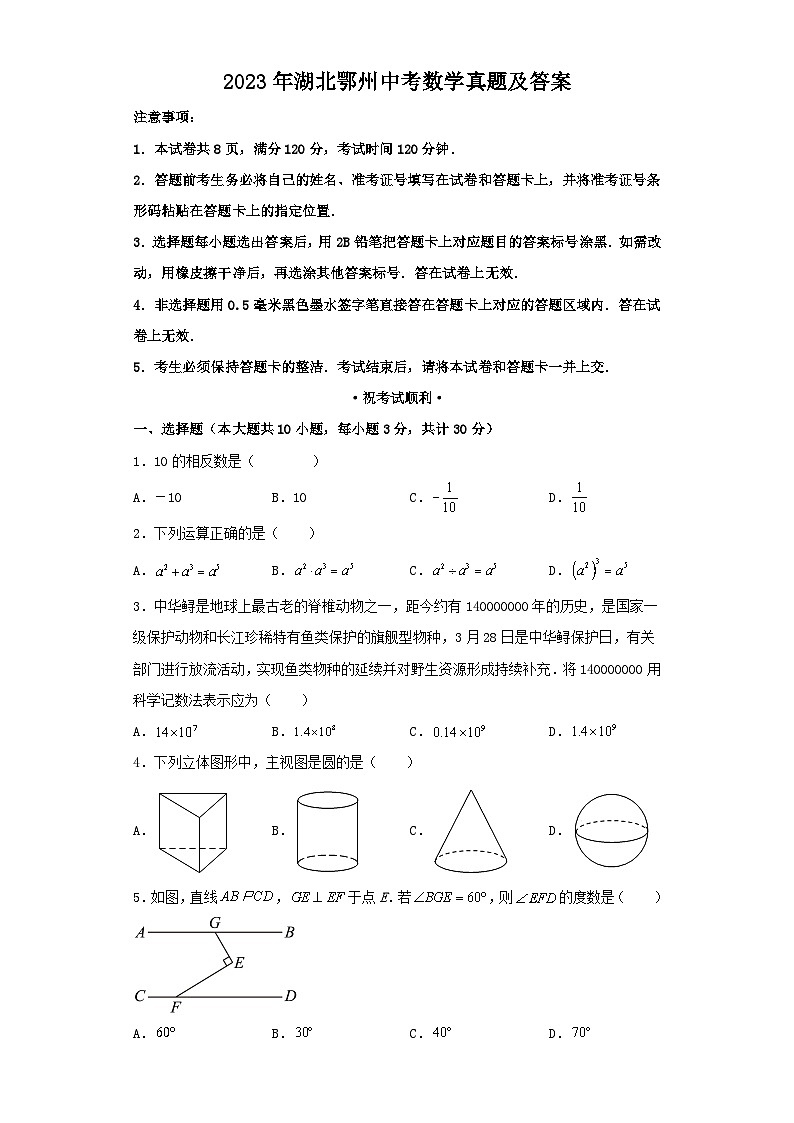 2023年湖北鄂州中考数学真题及答案
注意事项：
1．本试卷共8页，满分120分，考试时间120分钟．
2．答题前考生务必将自己的姓名、准考证号填写在试卷和答题卡上，并将准考证号条
形码粘贴在答题卡上的指定位置．
3．选择题每小题选出答案后，用2B铅笔把答题卡上对应题目的答案标号涂黑．如需改
动，用橡皮擦干净后，再选涂其他答案标号．答在试卷上无效．
4．非选择题用0.5毫米黑色墨水签字笔直接答在答题卡上对应的答题区域内．答在试
卷上无效．
5．考生必须保持答题卡的整洁．考试结束后，请将本试卷和答题卡一并上交．
·祝考试顺利·
一、选择题（本大题共10小题，每小题3分，共计30分）
1．10的相反数是（　　）
A．－10　B．10　C．−1/10　D．1/10
2．下列运算正确的是（　　）
A．a²+a³=a⁵　B．a²·a³=a⁵　C．a²÷a³=a⁵　D．(a²)³=a⁵
3．中华鲟是地球上最古老的脊椎动物之一，距今约有140000000年的历史，是国家一
级保护动物和长江珍稀特有鱼类保护的旗舰型物种，3月28日是中华鲟保护日，有关
部门进行放流活动，实现鱼类物种的延续并对野生资源形成持续补充．将140000000用
科学记数法表示应为（　　）
A．14×10⁷　B．1.4×10⁸　C．0.14×10⁹　D．1.4×10⁹
4．下列立体图形中，主视图是圆的是（　　）
A．　B．　C．　D．
5．如图，直线AB∥CD，GE⊥EF于点E．若∠BGE=60°，则∠EFD的度数是（　　）
A G B
E
C F D
A．60°　B．30°　C．40°　D．70°